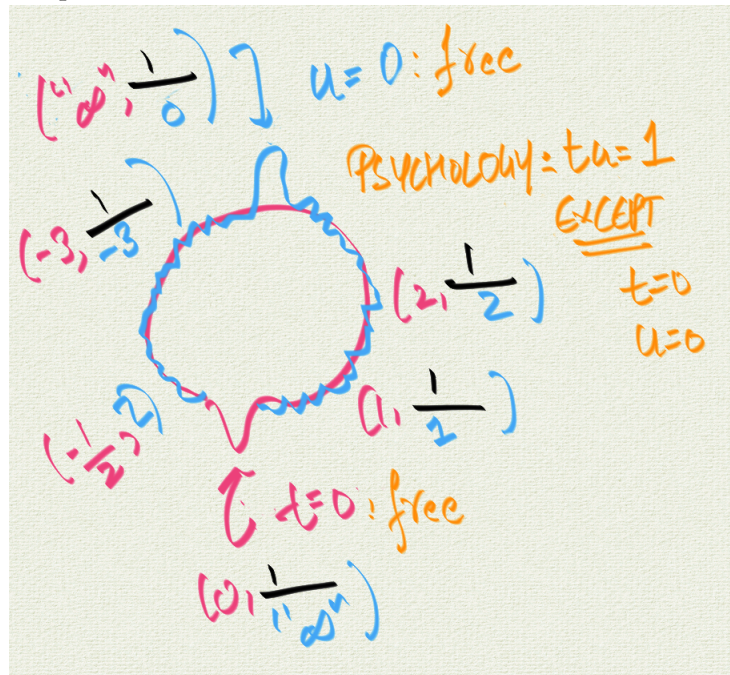 ("∞", 1/0)] u=0: free
PSYCHOLOGY: tu=1
EXCEPT
t=0
u=0
(-3, 1/-3)
(2, 1/2)
(1, 1/1)
(-1/2, 2)
[ t=0: free
(0, 1/"∞")